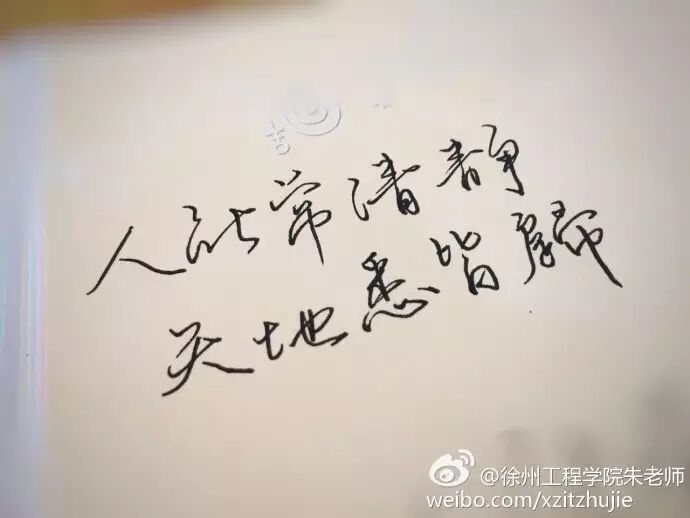 人能常清静
天地悉皆歸
@徐州工程学院朱老师
weibo.com/xzitzhujie